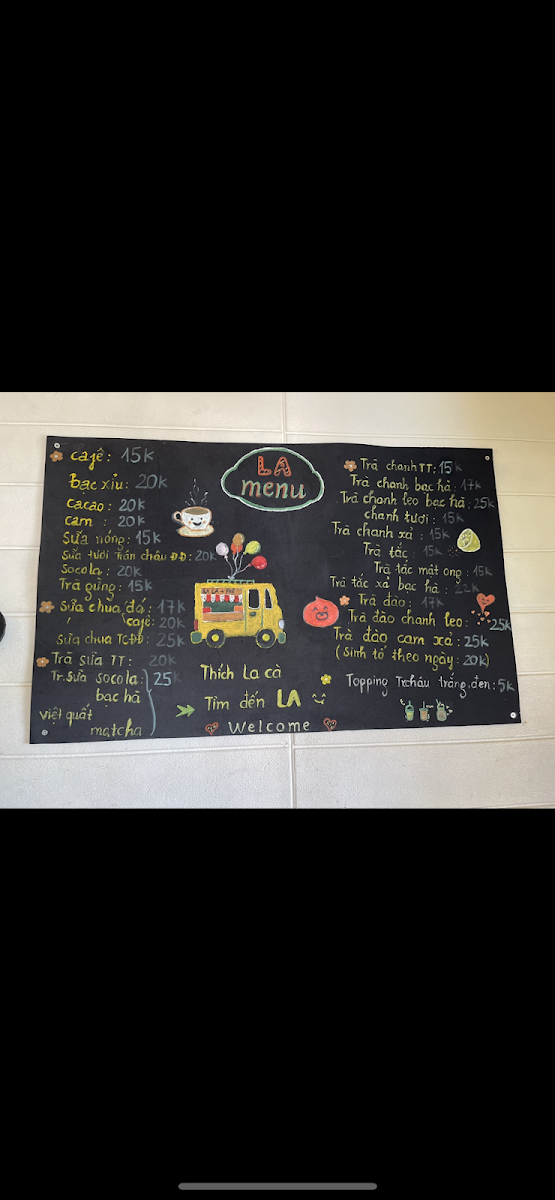 LA
menu
cafê: 15k
Bạc xỉu: 20k
cacao: 20k
cam: 20k
Sữa nóng: 15k
Sữa tươi trân châu ĐĐ: 20k
Socola: 20k
Trà gừng: 15k
Sữa chua đá: 17k
cafê: 20k
Sữa chua TCĐĐ: 25k
Trà sữa TT: 20k
Tr.Sữa socola: 25k
bạc hà
việt quất
matcha
Thích La cà
Tìm đến LA
Welcome
Trà chanh TT: 15k
Trà chanh bạc hà: 17k
Trà chanh leo bạc hà: 25k
chanh tươi: 15k
Trà chanh xả: 15k
Trà tắc: 15k
Trà tắc mật ong: 15k
Trà tắc xả bạc hà: 22k
Trà đào: 17k
Trà đào chanh leo: 25k
Trà đào cam xả: 25k
(Sinh tố theo ngày: 20k)
Topping Tr.châu trắng, đen: 5k